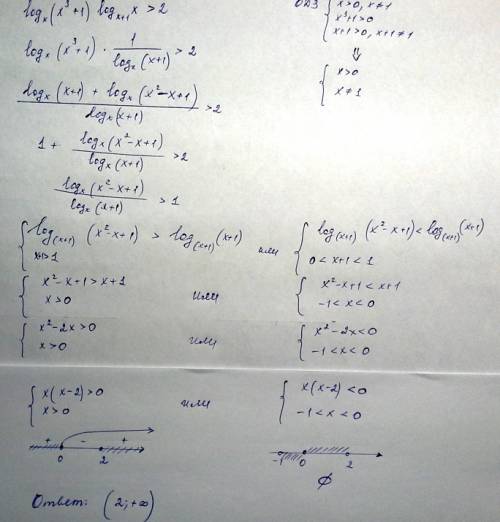 logₓ(x³+1) logₓ₊₁ x > 2
ОДЗ { x>0, x≠1
x³+1>0
x+1>0, x+1≠1
logₓ(x³+1) · 1/logₓ(x+1) > 2
⇓
{ x>0
x≠1
(logₓ(x+1) + logₓ(x²-x+1))/logₓ(x+1) > 2
1 + logₓ(x²-x+1)/logₓ(x+1) > 2
logₓ(x²-x+1)/logₓ(x+1) > 1
{ log₍ₓ₊₁₎(x²-x+1) > log₍ₓ₊₁₎(x+1) или { log₍ₓ₊₁₎(x²-x+1) < log₍ₓ₊₁₎(x+1)
x+1>1 0<x+1<1
{ x²-x+1>x+1 или { x²-x+1<x+1
x>0 -1<x<0
{ x²-2x>0 или { x²-2x<0
x>0 -1<x<0
{ x(x-2)>0 или { x(x-2)<0
x>0 -1<x<0
+ - +
0 2 -1 0 2
∅
Ответ: (2;+∞)